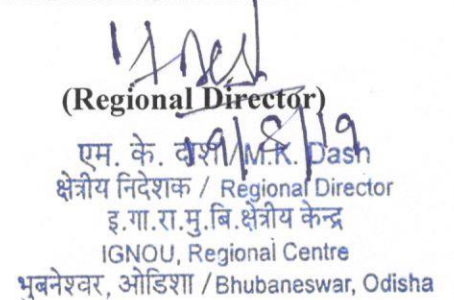 (Regional Director)
19/8/19
एम. के. दाश / M.K. Dash
क्षेत्रीय निदेशक / Regional Director
इ.गा.रा.मु.बि.क्षेत्रीय केन्द्र
IGNOU, Regional Centre
भुबनेश्वर, ओडिशा / Bhubaneswar, Odisha